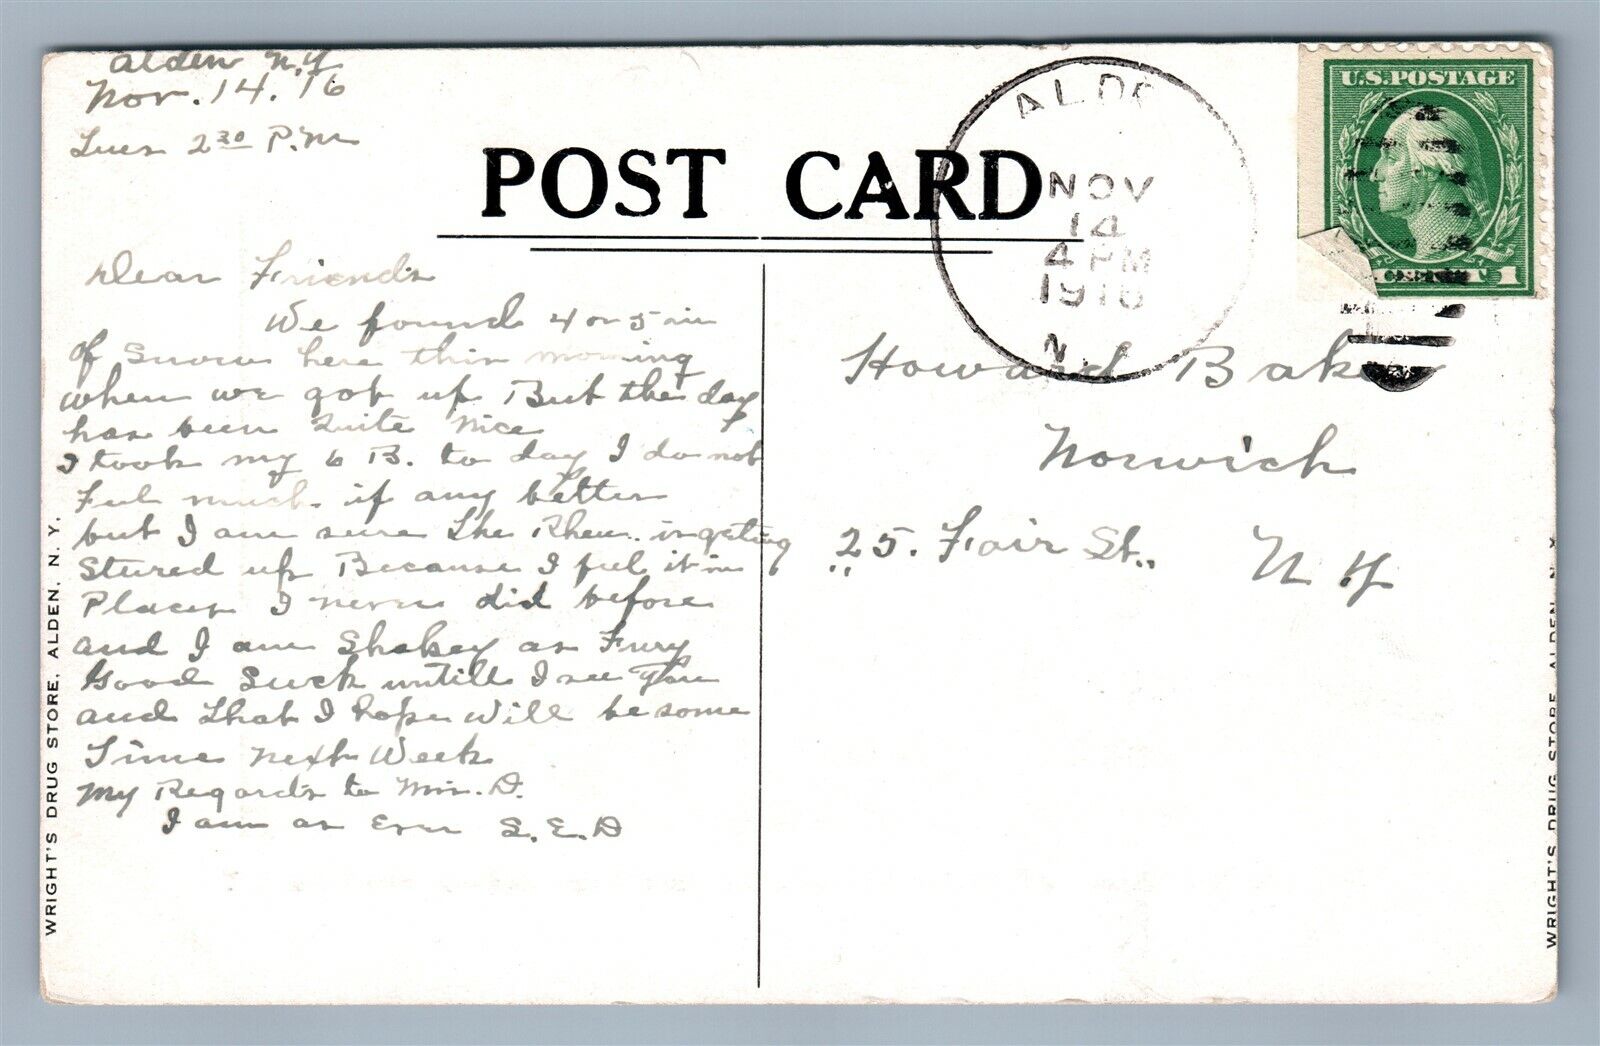 Alden N.Y
Nov. 14. 16
Tues 2 30 P.M
POST CARD
ALDE
NOV
14
4 PM
1916
N.
U.S. POSTAGE
1 CENT 1
Dear Friends
We found 4 or 5 in
of Snow here this morning
when we got up But the day
has been Quite Nice
I took my 6 B. to day I do not
Feel much if any better
but I am sure the Rheu. is geting
Stured up Because I feel it in
Places I never did before
and I am Shakey as Fury
Good Luck untill I see you
and that I hope will be some
Time Next Week
My Regards to Mrs. D.
I am as Ever S. E. D
Howard Baker
Norwich
25. Fair St.
N Y
WRIGHT'S DRUG STORE, ALDEN, N. Y.
WRIGHT'S DRUG STORE, ALDEN, N. Y.